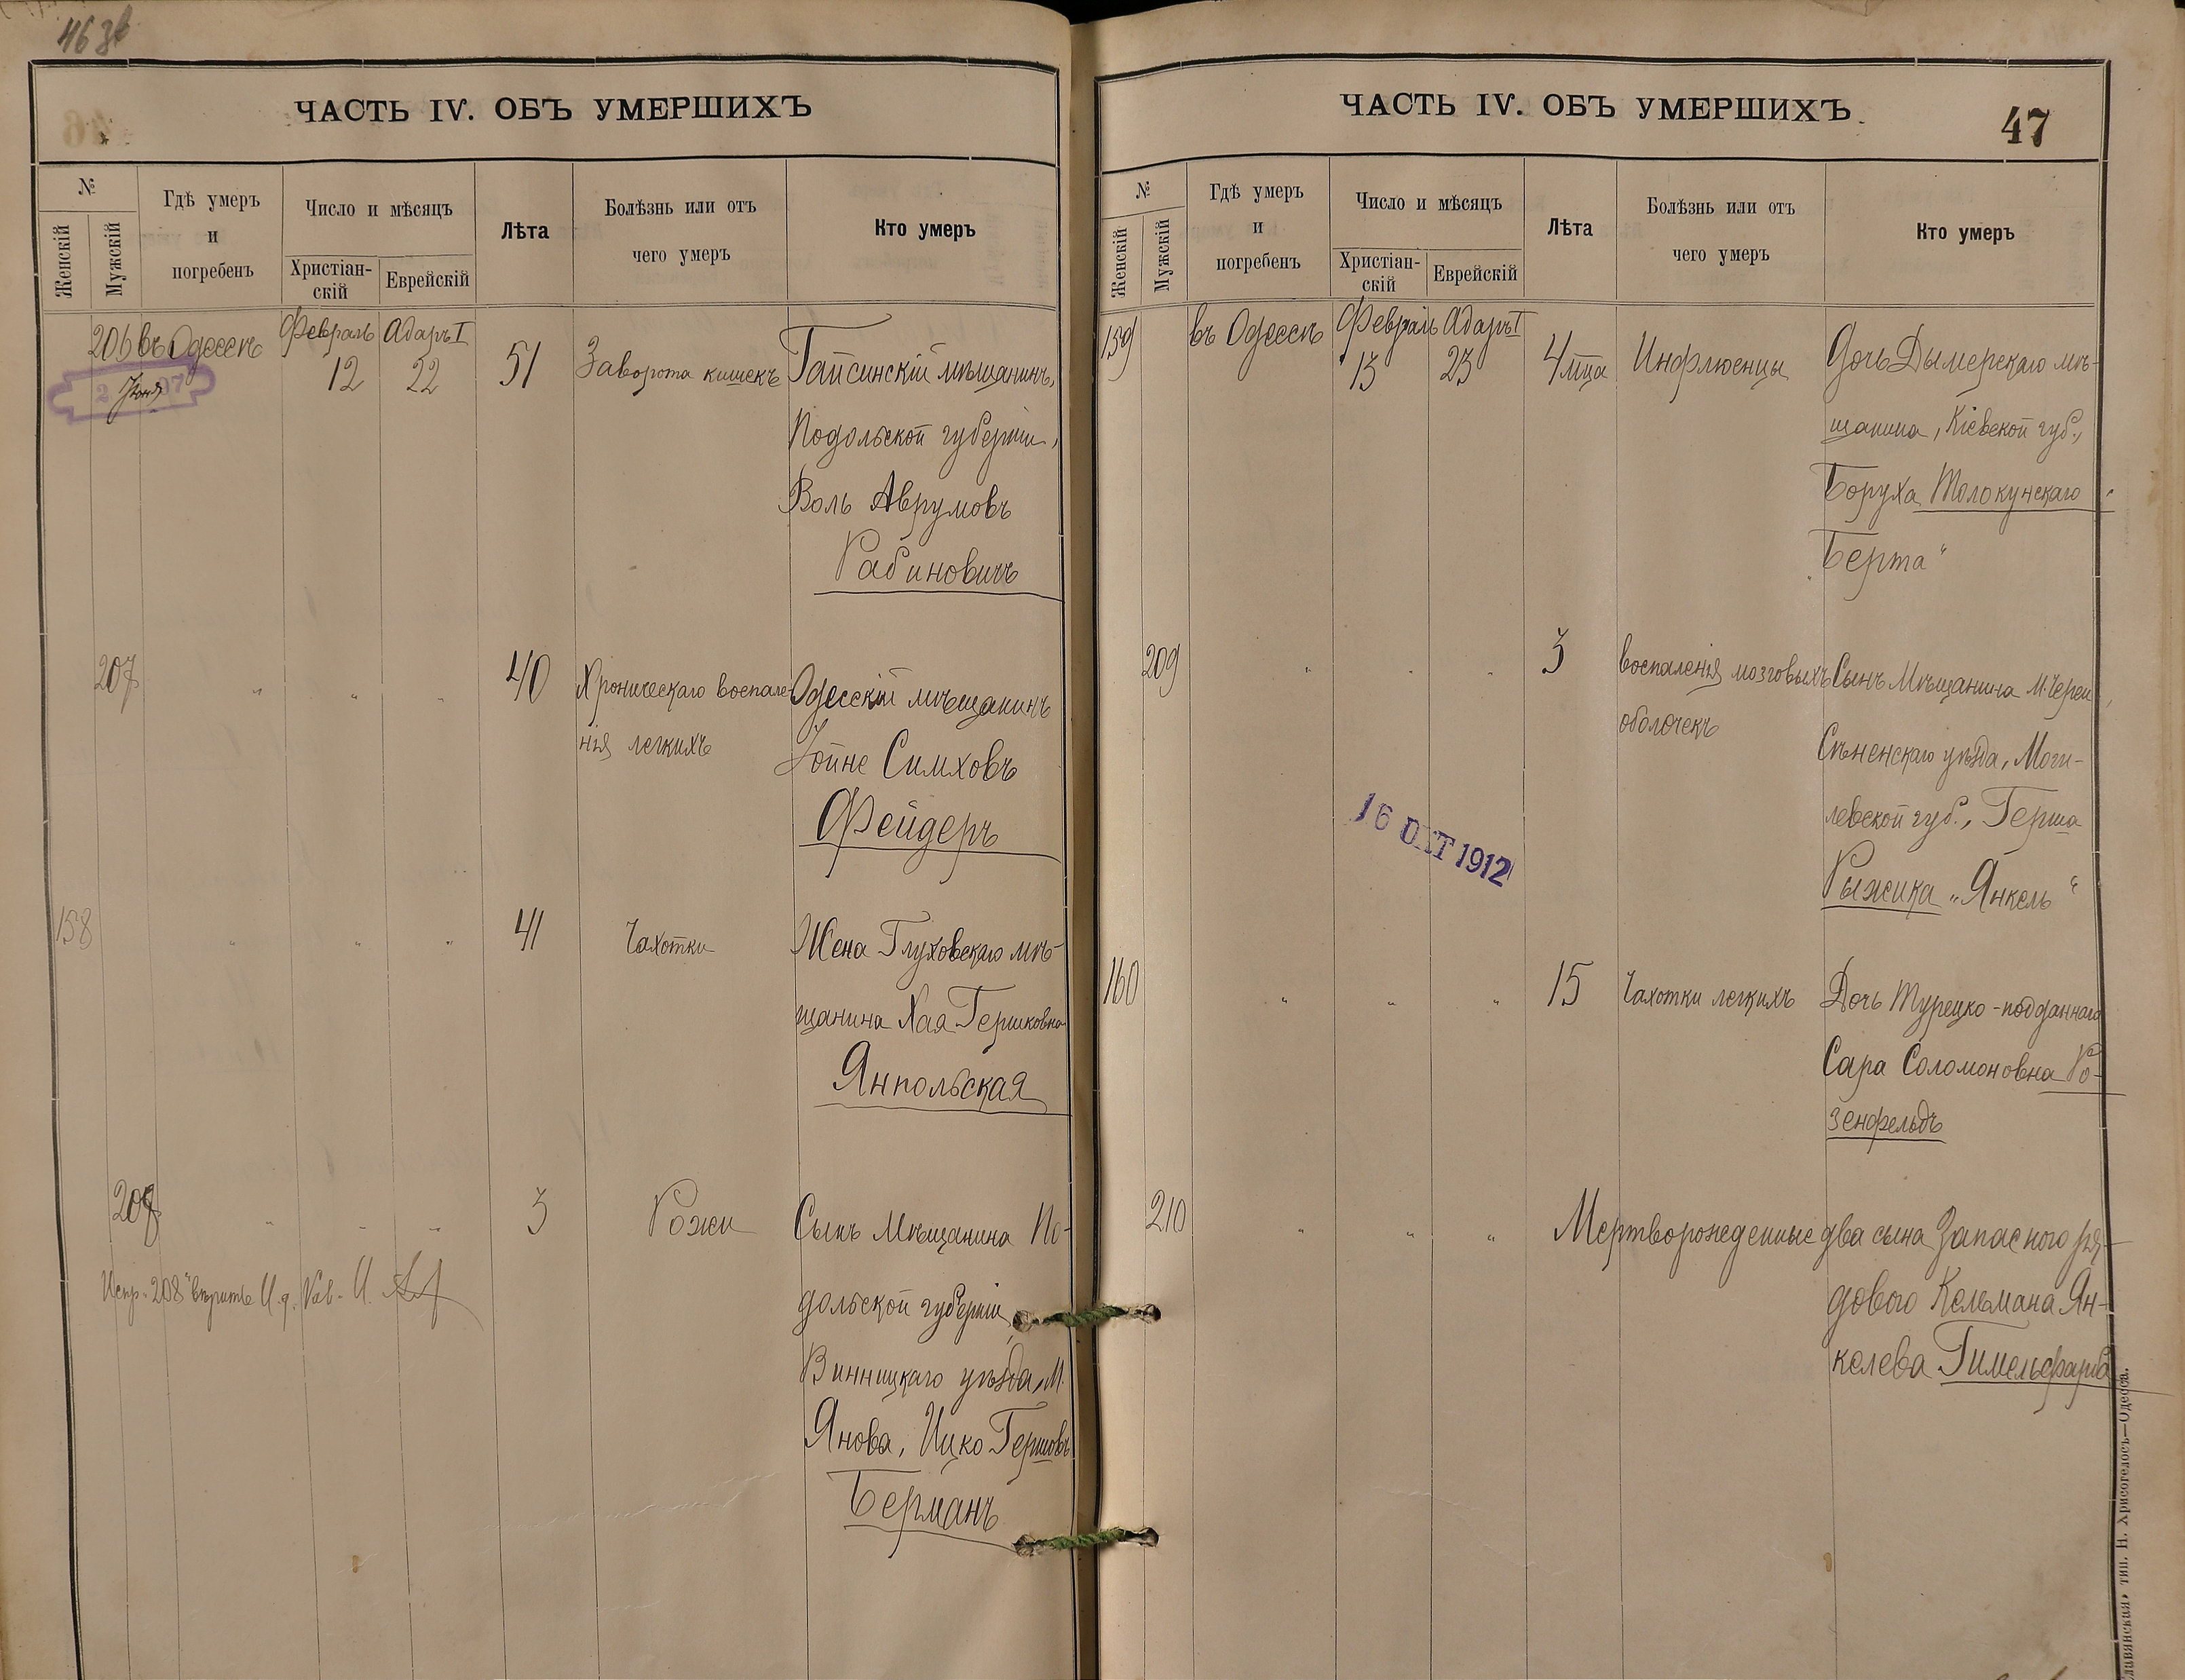 46 зв
ЧАСТЬ IV. ОБЪ УМЕРШИХЪ
№
Женскій
Мужскій
Гдѣ умеръ
и
погребенъ
Число и мѣсяцъ
Христіан-
скій
Еврейскій
Лѣта
Болѣзнь или отъ
чего умеръ
Кто умеръ
206 въ Одессѣ Февраль Адаръ I
12 22 51 Заворота кишекъ Гайсинскій мѣщанинъ,
Подольской губерніи,
Воль Аврумовъ
Рабиновичъ
207 " " " 40 Хроническаго воспале- Одесскій мѣщанинъ
нія легкихъ Іойне Симховъ
Фейдеръ
158 " " " 41 Чахотки Жена Глуховскаго мѣ-
щанина Хая Гершковна
Янпольская
208 " " " 3 Рожи Сынъ Мѣщанина По-
дольской губерніи,
Винницкаго уѣзда, М.
Янова, Ицко Гершовъ
Берманъ
Испр. "208" вѣрить И. д. Рав. И.
ЧАСТЬ IV. ОБЪ УМЕРШИХЪ
47
№
Женскій
Мужскій
Гдѣ умеръ
и
погребенъ
Число и мѣсяцъ
Христіан-
скій
Еврейскій
Лѣта
Болѣзнь или отъ
чего умеръ
Кто умеръ
159 въ Одессѣ Февраль Адаръ I
13 23 4 мца Инфлюенцы Дочь Дымерскаго мѣ-
щанина, Кіевской губ.,
Боруха Толокунскаго
Берта"
209 " " " 3 воспаленія мозговыхъ Сынъ Мѣщанина М. Череи,
оболочекъ Сѣненскаго уѣзда, Моги-
левской губ., Герша
Рыжика „Янкель"
16 ОКТ 1912
160 " " " 15 Чахотки легкихъ Дочь Турецко-подданнаго
Сара Соломоновна Ро-
зенфельдъ
210 " " " Мертворожденные два сына Запасного ря-
дового Кельмана Ян-
келева Гимельфарба
тип. Н. Хрисогелосъ—Одесса.